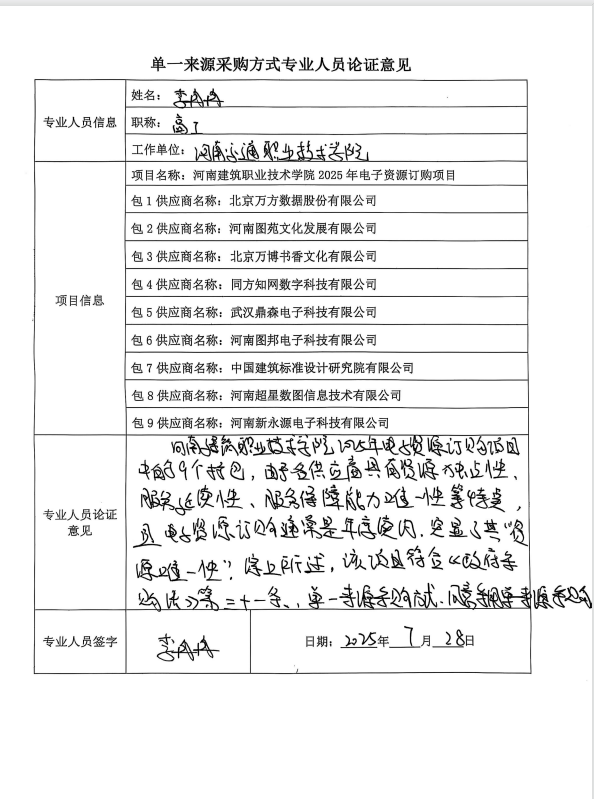 单一来源采购方式专业人员论证意见
专业人员信息
姓名：李冉冉
职称：高工
工作单位：河南交通职业技术学院
项目信息
项目名称：河南建筑职业技术学院 2025 年电子资源订购项目
包 1 供应商名称：北京万方数据股份有限公司
包 2 供应商名称：河南图苑文化发展有限公司
包 3 供应商名称：北京万博书香文化有限公司
包 4 供应商名称：同方知网数字科技有限公司
包 5 供应商名称：武汉鼎森电子科技有限公司
包 6 供应商名称：河南图邦电子科技有限公司
包 7 供应商名称：中国建筑标准设计研究院有限公司
包 8 供应商名称：河南超星数图信息技术有限公司
包 9 供应商名称：河南新永源电子科技有限公司
专业人员论证
意见
河南建筑职业技术学院2025年电子资源订购项目
中的9个标包，由于各供应商具有资源独占性、
服务延续性、服务保障能力唯一性等特点，
且电子资源订购通常是年度续订，突显了其“资
源唯一性”。综上所述，该项目符合《政府采
购法》第三十一条，单一来源采购方式，同意采用单一来源采购
专业人员签字
李冉冉
日期：2025年 7 月 28日